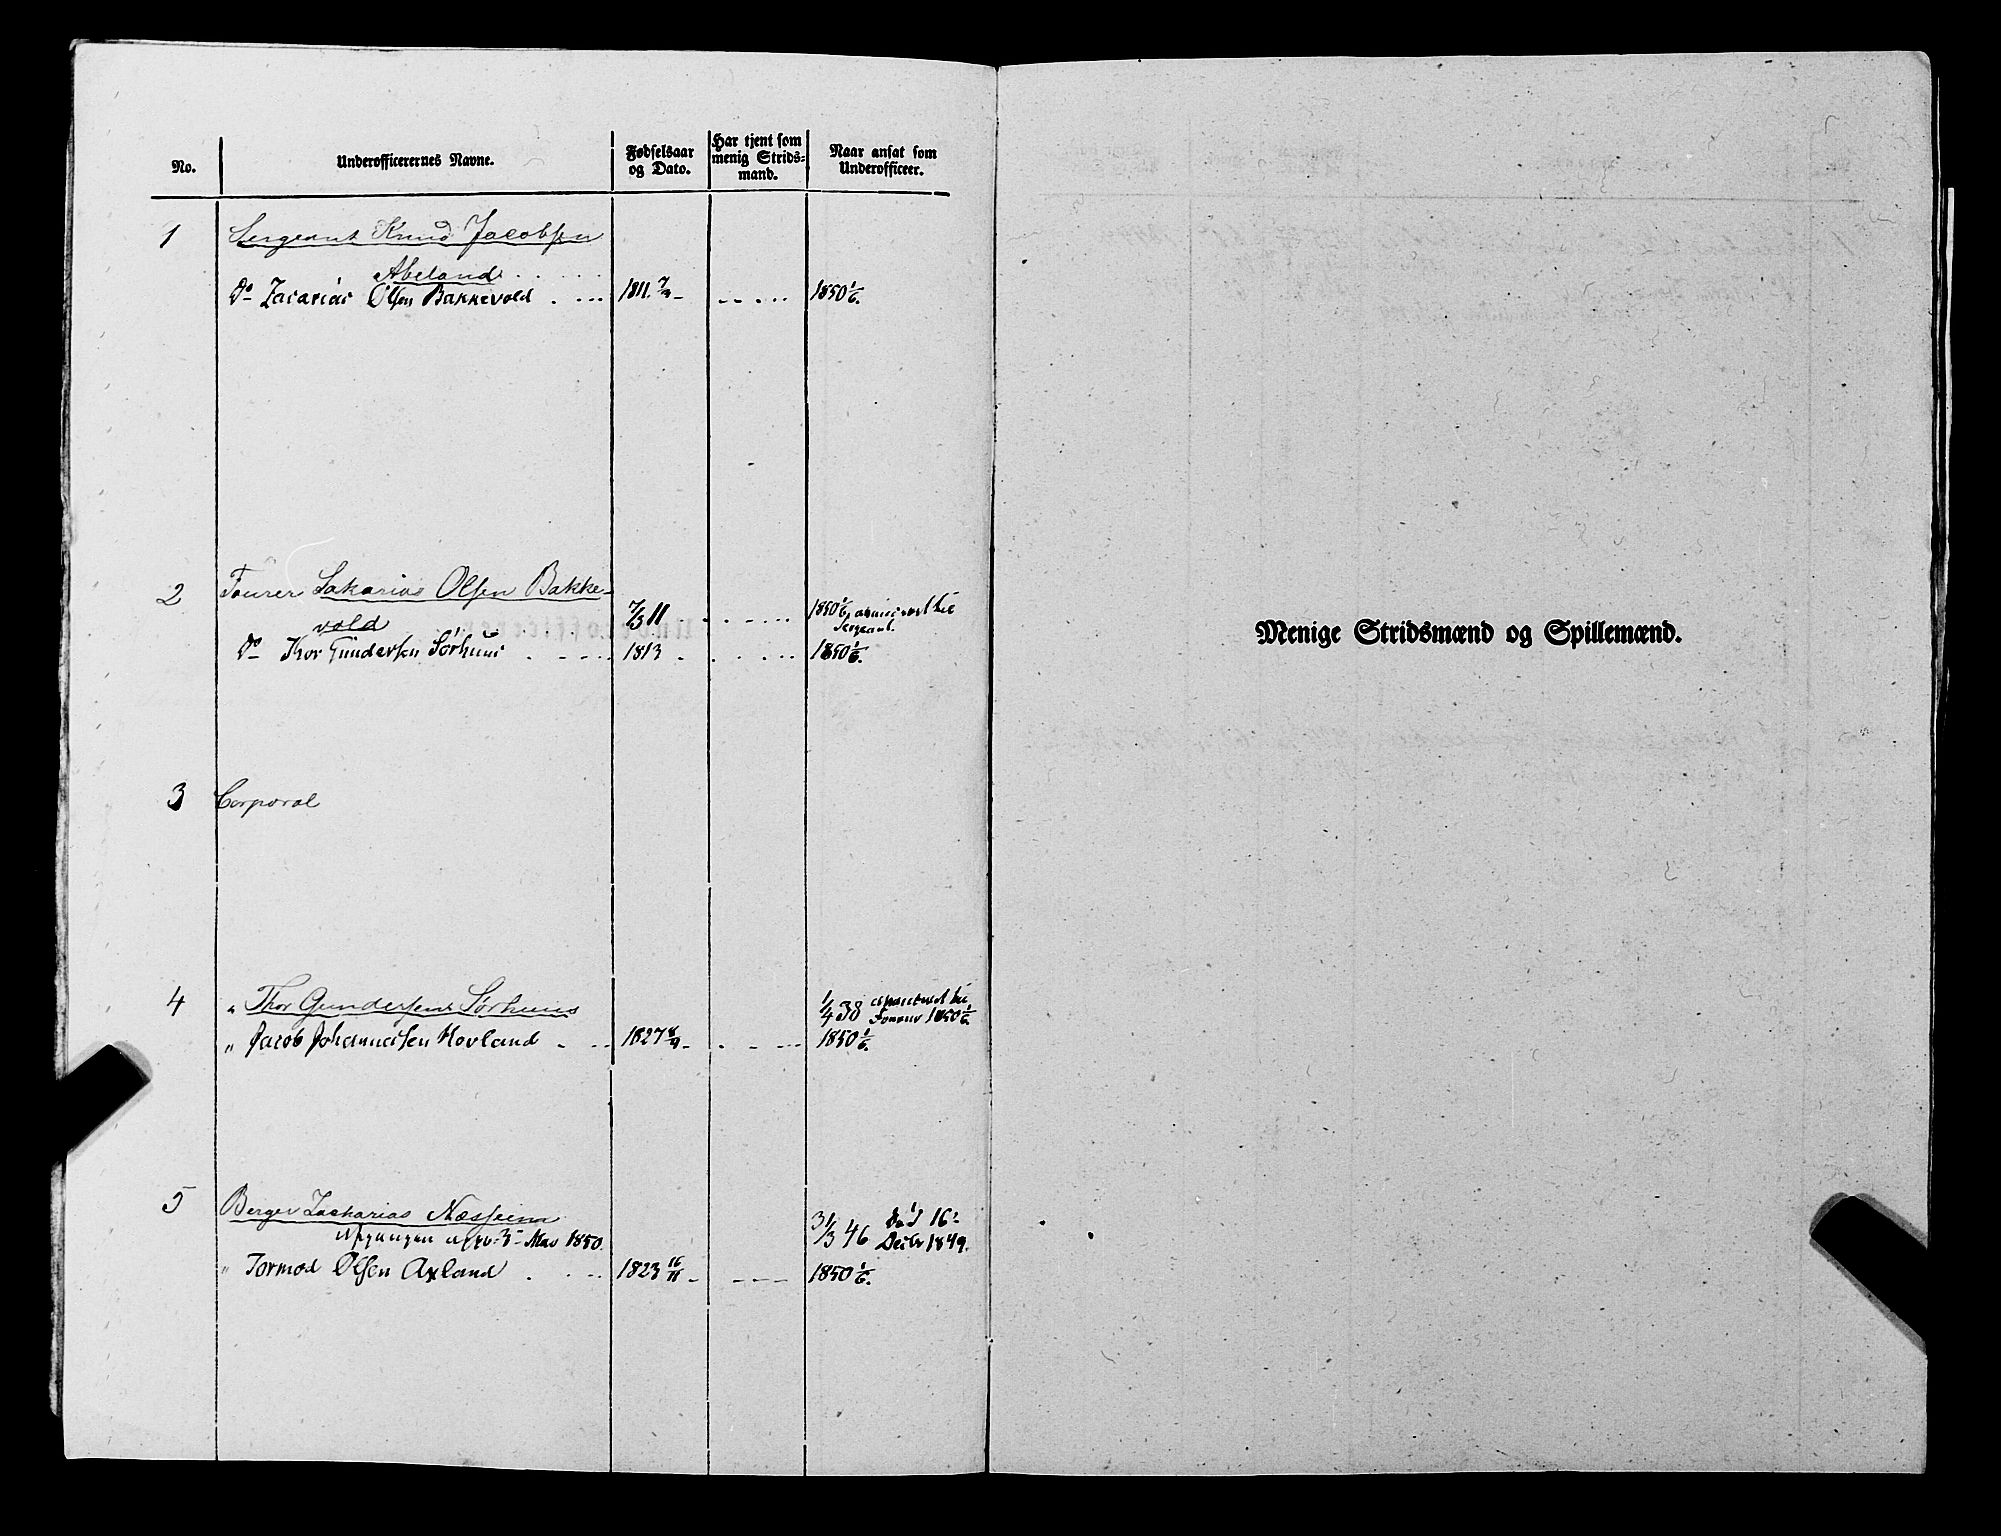 No.
Underofficerernes Navne.
Fødselsaar
og Dato.
Har tjent som
menig Strids-
mand.
Naar ansat som
Underofficeer.
1 Sergeant Knud Jacobsen
Abeland . . . . .
Do Zacarias Olsen Bakkevold . . . . 1811. 7/3 - - - . . . 1850 1/6.
2 Fourer Sakarias Olsen Bakke-
vold 7/3 11 . . . . . . 1850 1/6 avanceret til
Sergeant.
Do Thor Gundersen Sørhuus . . . . . 1813 . . . . . . 1850 1/6.
3 Corporal
4 " Thor Gundersen Sørhuus 1/4 38 avanceret til
Fourer 1850 1/6.
" Jacob Johannesen Hovland . . . 1827 8/9 - . . . . 1850 1/6.
5 Berger Zacharias Næsheim 3 1/3 46 Død 16-
Decbr 1849.
Afgangen appr. 3- Mai 1850.
" Tormod Olsen Axland . . . . 1823 16/11 - - - - - 1850 1/6.
Menige Stridsmænd og Spillemænd.